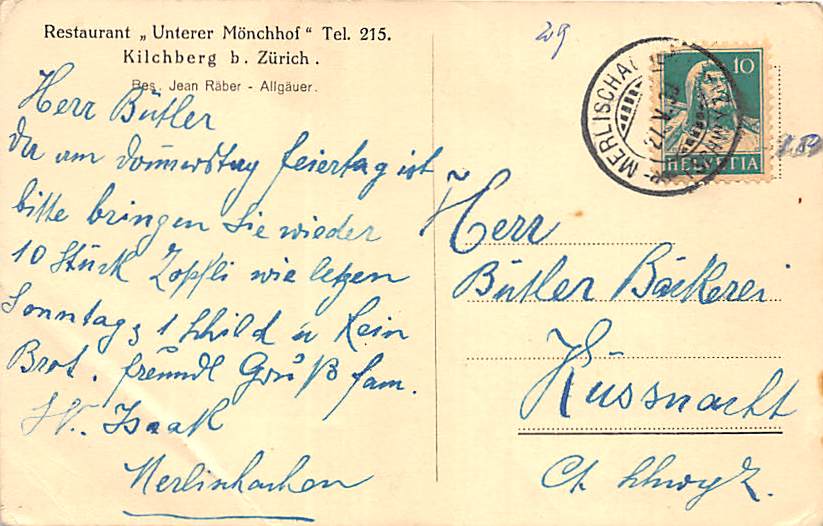 Restaurant „Unterer Mönchhof" Tel. 215.
Kilchberg b. Zürich.
Bes. Jean Räber - Allgäuer.
Herr Bütler
da am Donnerstag feiertag ist
bitte bringen Sie wieder
10 Stück Zopfli wie letzen
Sonntag 1 u kein
Brot. freundl Gruß fam.
Isaak
Merlischachen
29
MERLISCHA
27.V.
10
HELVETIA
Herr
Bütler Bäckerei
Küssnacht
Ct. Schwyz.